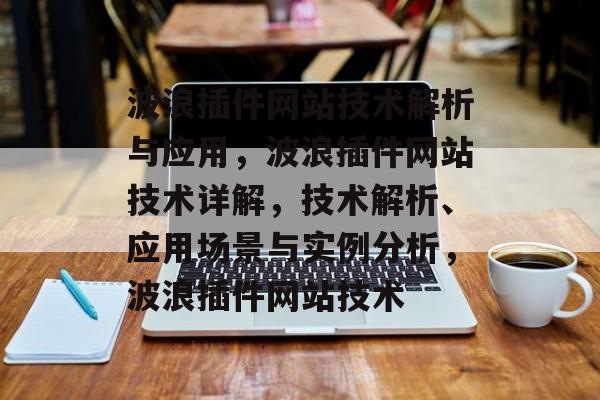 波浪插件网站技术解析
与应用，波浪插件网站
技术详解，技术解析、
应用场景与实例分析，
波浪插件网站技术